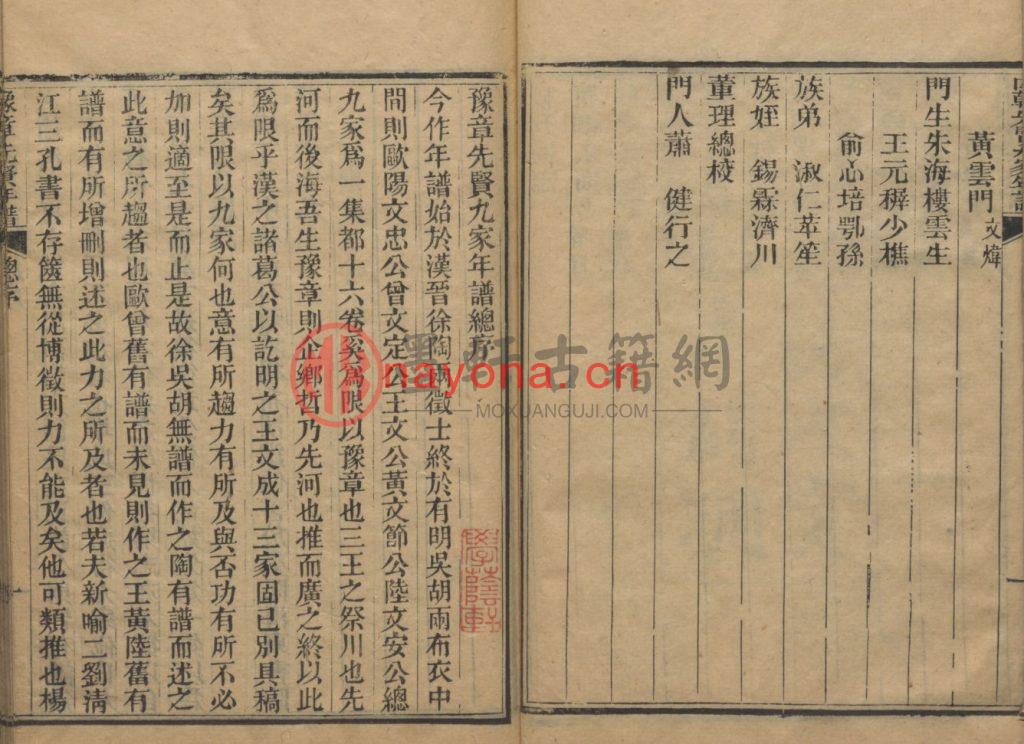 黃雲門文煒
門生朱海樓雲生
王元穉少樵
俞心培鄂孫
族弟 淑仁萃笙
族姪 錫霖濟川
董理總校
門人蕭 健行之
豫章先賢九家年譜總序
今作年譜始於漢晉徐陶兩徵士終於有明吳胡兩布衣中
間則歐陽文忠公曾文定公王文公黃文節公陸文安公總
九家爲一集都十六卷奚爲限以豫章也三王之祭川也先
河而後海吾生豫章則企鄉哲乃先河也推而廣之終以此
爲限乎漢之諸葛公以訖明之王文成十三家固已別具稿
矣其限以九家何也意有所趨力有所及與否功有所不必
加則適至是而止是故徐吳胡無譜而作之陶有譜而述之
此意之所趨者也歐曾舊有譜而未見則作之王黃陸舊有
譜而有所增刪則述之此力之所及者也若夫新喻二劉淸
江三孔書不存篋無從博徵則力不能及矣他可類推也楊
豫章先賢年譜 總序
墨軒古籍網
nayona.cn
MOXUANGUJI.COM